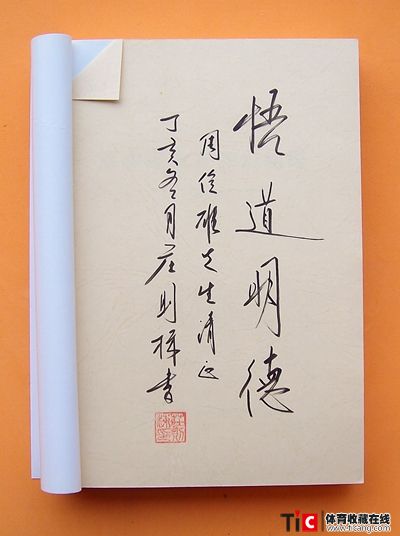 悟道明德
周俊雄先生清正
丁亥冬月庄则栋书
TiC 体育收藏在线
www.ticang.com